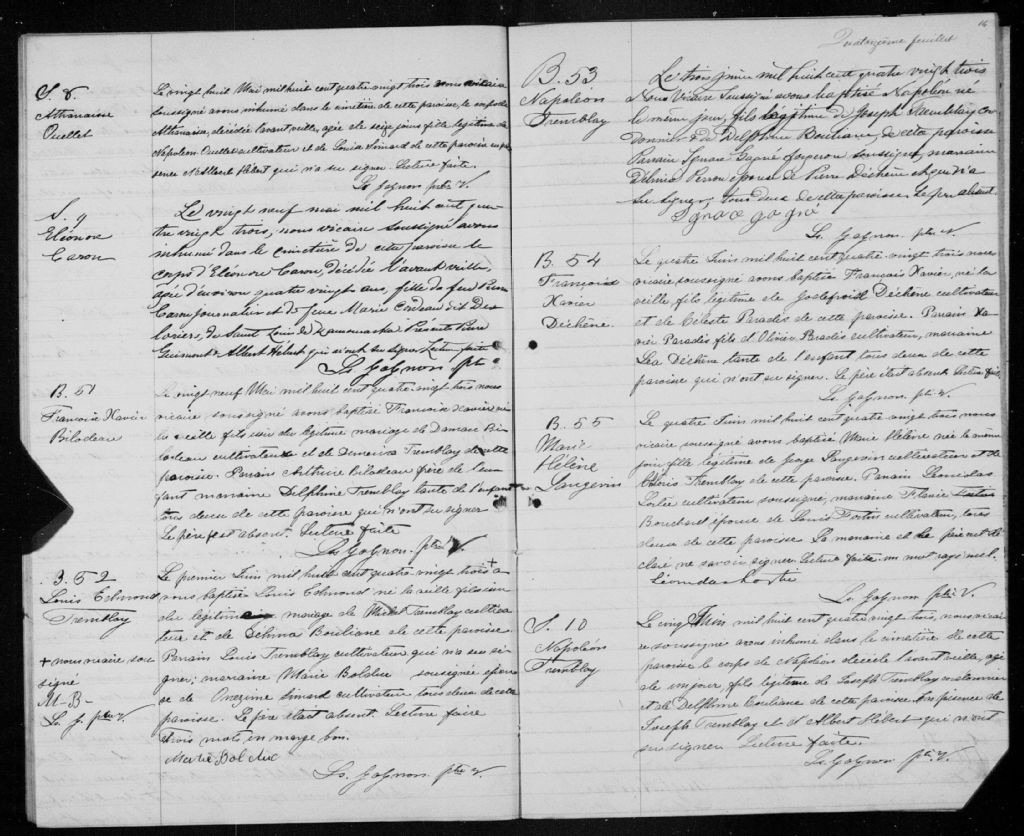 S. 8.
Athanaïse
Ouellet
Le vingt huit Mai mil huit cent quatre vingt trois nous vicaire
soussigné avons inhumé dans le cimetière de cette paroisse, le corps de
Athanaïse, décédée l'avant veille, agée de seize jours fille légitime de
Napoléon Ouellet cultivateur et de Simard de cette paroisse en pré
sence d'Albert Hébert qui n'a su signer. Lecture faite.
Ls Gagnon ptre V.
S. 9
Eléonore
Caron
Le vingt neuf mai mil huit cent qua
tre vingt trois, nous vicaire soussigné avons
inhumé dans le cimetière de cette paroisse le
corps d'Eléonore Caron, décédée l'avant veille,
agée d'environ quatre vingts ans, fille de feu
Caron journalier et de feue Marie dit Des
loriers, de Saint Louis de Kamouraska Présents Pierre
Guimont & Albert Hébert qui n'ont su signer. Lecture faite
Ls Gagnon ptre
B. 51
Francois Xavier
Bilodeau
Le vingt neuf Mai mil huit cent quatre vingt trois nous
vicaire soussigné avons baptisé Francois Xavier né
la veille fils issu du légitime mariage de Damase Bi
lodeau cultivateur et de Démerise Tremblay de cette
paroisse. Parain Arthur Bilodeau frère de l'en
fant marraine Delphine Tremblay tante de l'enfant
tous deux de cette paroisse qui n'ont su signer
Le père est absent. Lecture faite
Ls Gagnon ptre V
B. 52
Louis Edmond
Tremblay
Le premier Juin mil huit cent quatre vingt trois +
avons baptisé Louis Edmond né la veille fils issu
du légitime mariage de Michel Tremblay cultiva
teur et de Zélina Bouliane de cette paroisse
Parain Louis Tremblay cultivateur qui n'a su si
gner; marraine Marie Bolduc soussignée épou
se de Onezime Simard cultivateur tous deux de cette
paroisse. Le père était absent. Lecture faite
trois mots en marge bon.
Marie Bolduc
Ls Gagnon ptre V.
+ nous vicaire sou
signé
M-B-
Ls G. ptre V
14
Quatorzième feuillet
B. 53
Napoléon
Tremblay
Le trois juin mil huit cent quatre vingt trois
Nous Vicaire Soussigné avons baptisé Napoléon né
le meme jour, fils légitime de Joseph Tremblay cor
donnier & de Delphine Bouliane, de cette paroisse
Parrain Ignace Gagné forgeron soussigné, marraine
Delima Perron épouse de Pierre Déchène qui n'a
su signer, tous deux de cette paroisse. Le père absent
Ignace gagne
Ls. Gagnon ptre V.
B. 54
François
Xavier
Déchêne.
Le quatre Juin mil huit cent quatre vingt trois nous
vicaire soussigné avons baptisé François Xavier, né la
veille, fils légitime de Godefroid Déchêne cultivateur
et de Céleste Paradis de cette paroisse. Parain Xa
vier Paradis fils d'Olivier Paradis cultivateur, marraine
Léa Déchêne tante de l'enfant tous deux de cette
paroisse qui n'ont su signer. Le père était absent. Lecture faite
Ls. Gagnon ptre V.
B. 55
Marie
Hélène
Langevin
Le quatre Juin mil huit cent quatre vingt trois nous
vicaire soussigné avons baptisé Marie Hélène née le même
jour fille légitime de George Langevin cultivateur et de
Tremblay de cette paroisse. Parain Léonidas
cultivateur soussigné, marraine Flavie
Bouchard épouse de Louis Fortin cultivateur, tous
deux de cette paroisse La marraine et le père ont dé
claré ne savoir signer. Lecture faite. un mot rayé nul.
Ls Gagnon ptre V.
S. 10
Napoléon
Tremblay
Le cinq Juin mil huit cent quatre vingt trois, nous vicai
re soussigné avons inhumé dans le cimetière de cette
paroisse le corps de Napoléon décédé l'avant veille, agé
de un jour, fils légitime de Joseph Tremblay cordonnier
et de Delphine Bouliane de cette paroisse. En présence de
Joseph Tremblay et d'Albert Hébert qui n'ont
su signer Lecture faite.
Ls Gagnon ptre V.